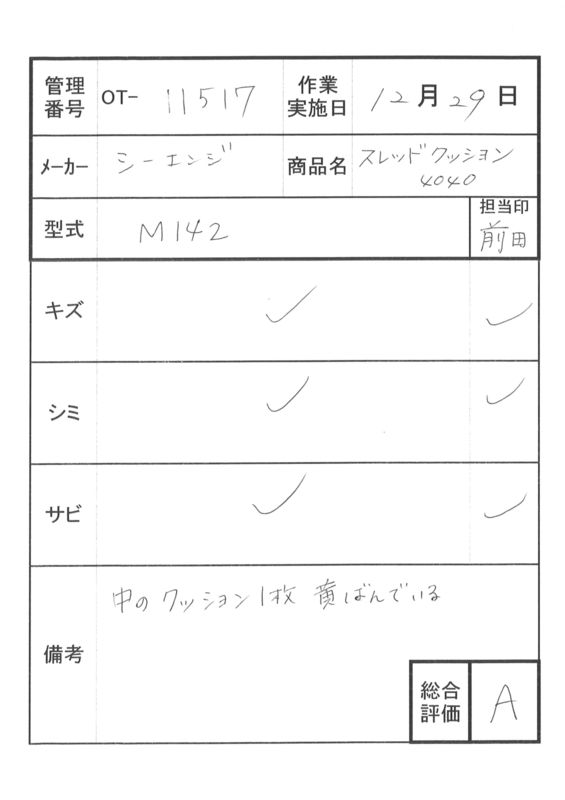 管理番号 OT- 11517 作業実施日 12月29日
メーカー シーエンジ 商品名 スレッドクッション
4040
型式 M142 担当印 前田
キズ ✓ ✓
シミ ✓ ✓
サビ ✓ ✓
備考 中のクッション1枚 黄ばんでいる
総合評価 A